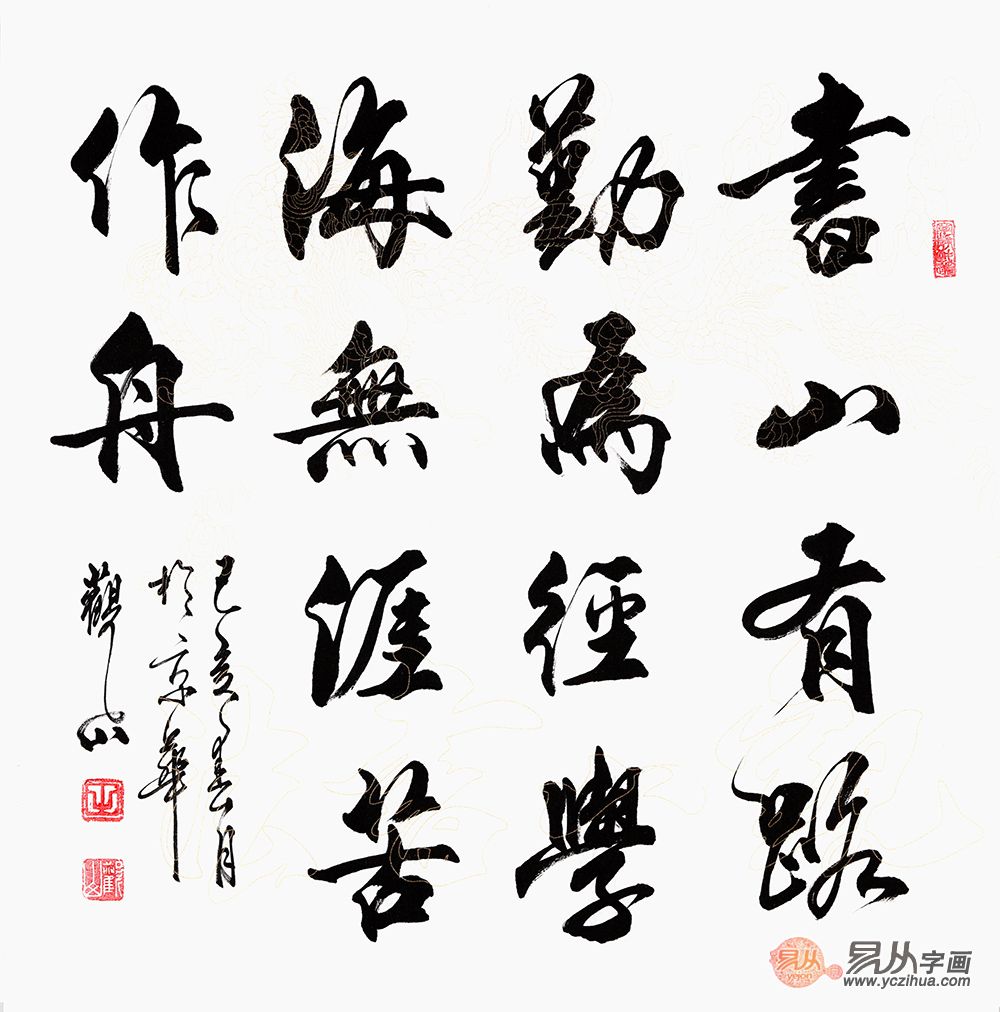 書山有路
勤為徑學
海無涯苦
作舟
己亥春月
於京華
觀山
易从字画
yejon
www.yczihua.com